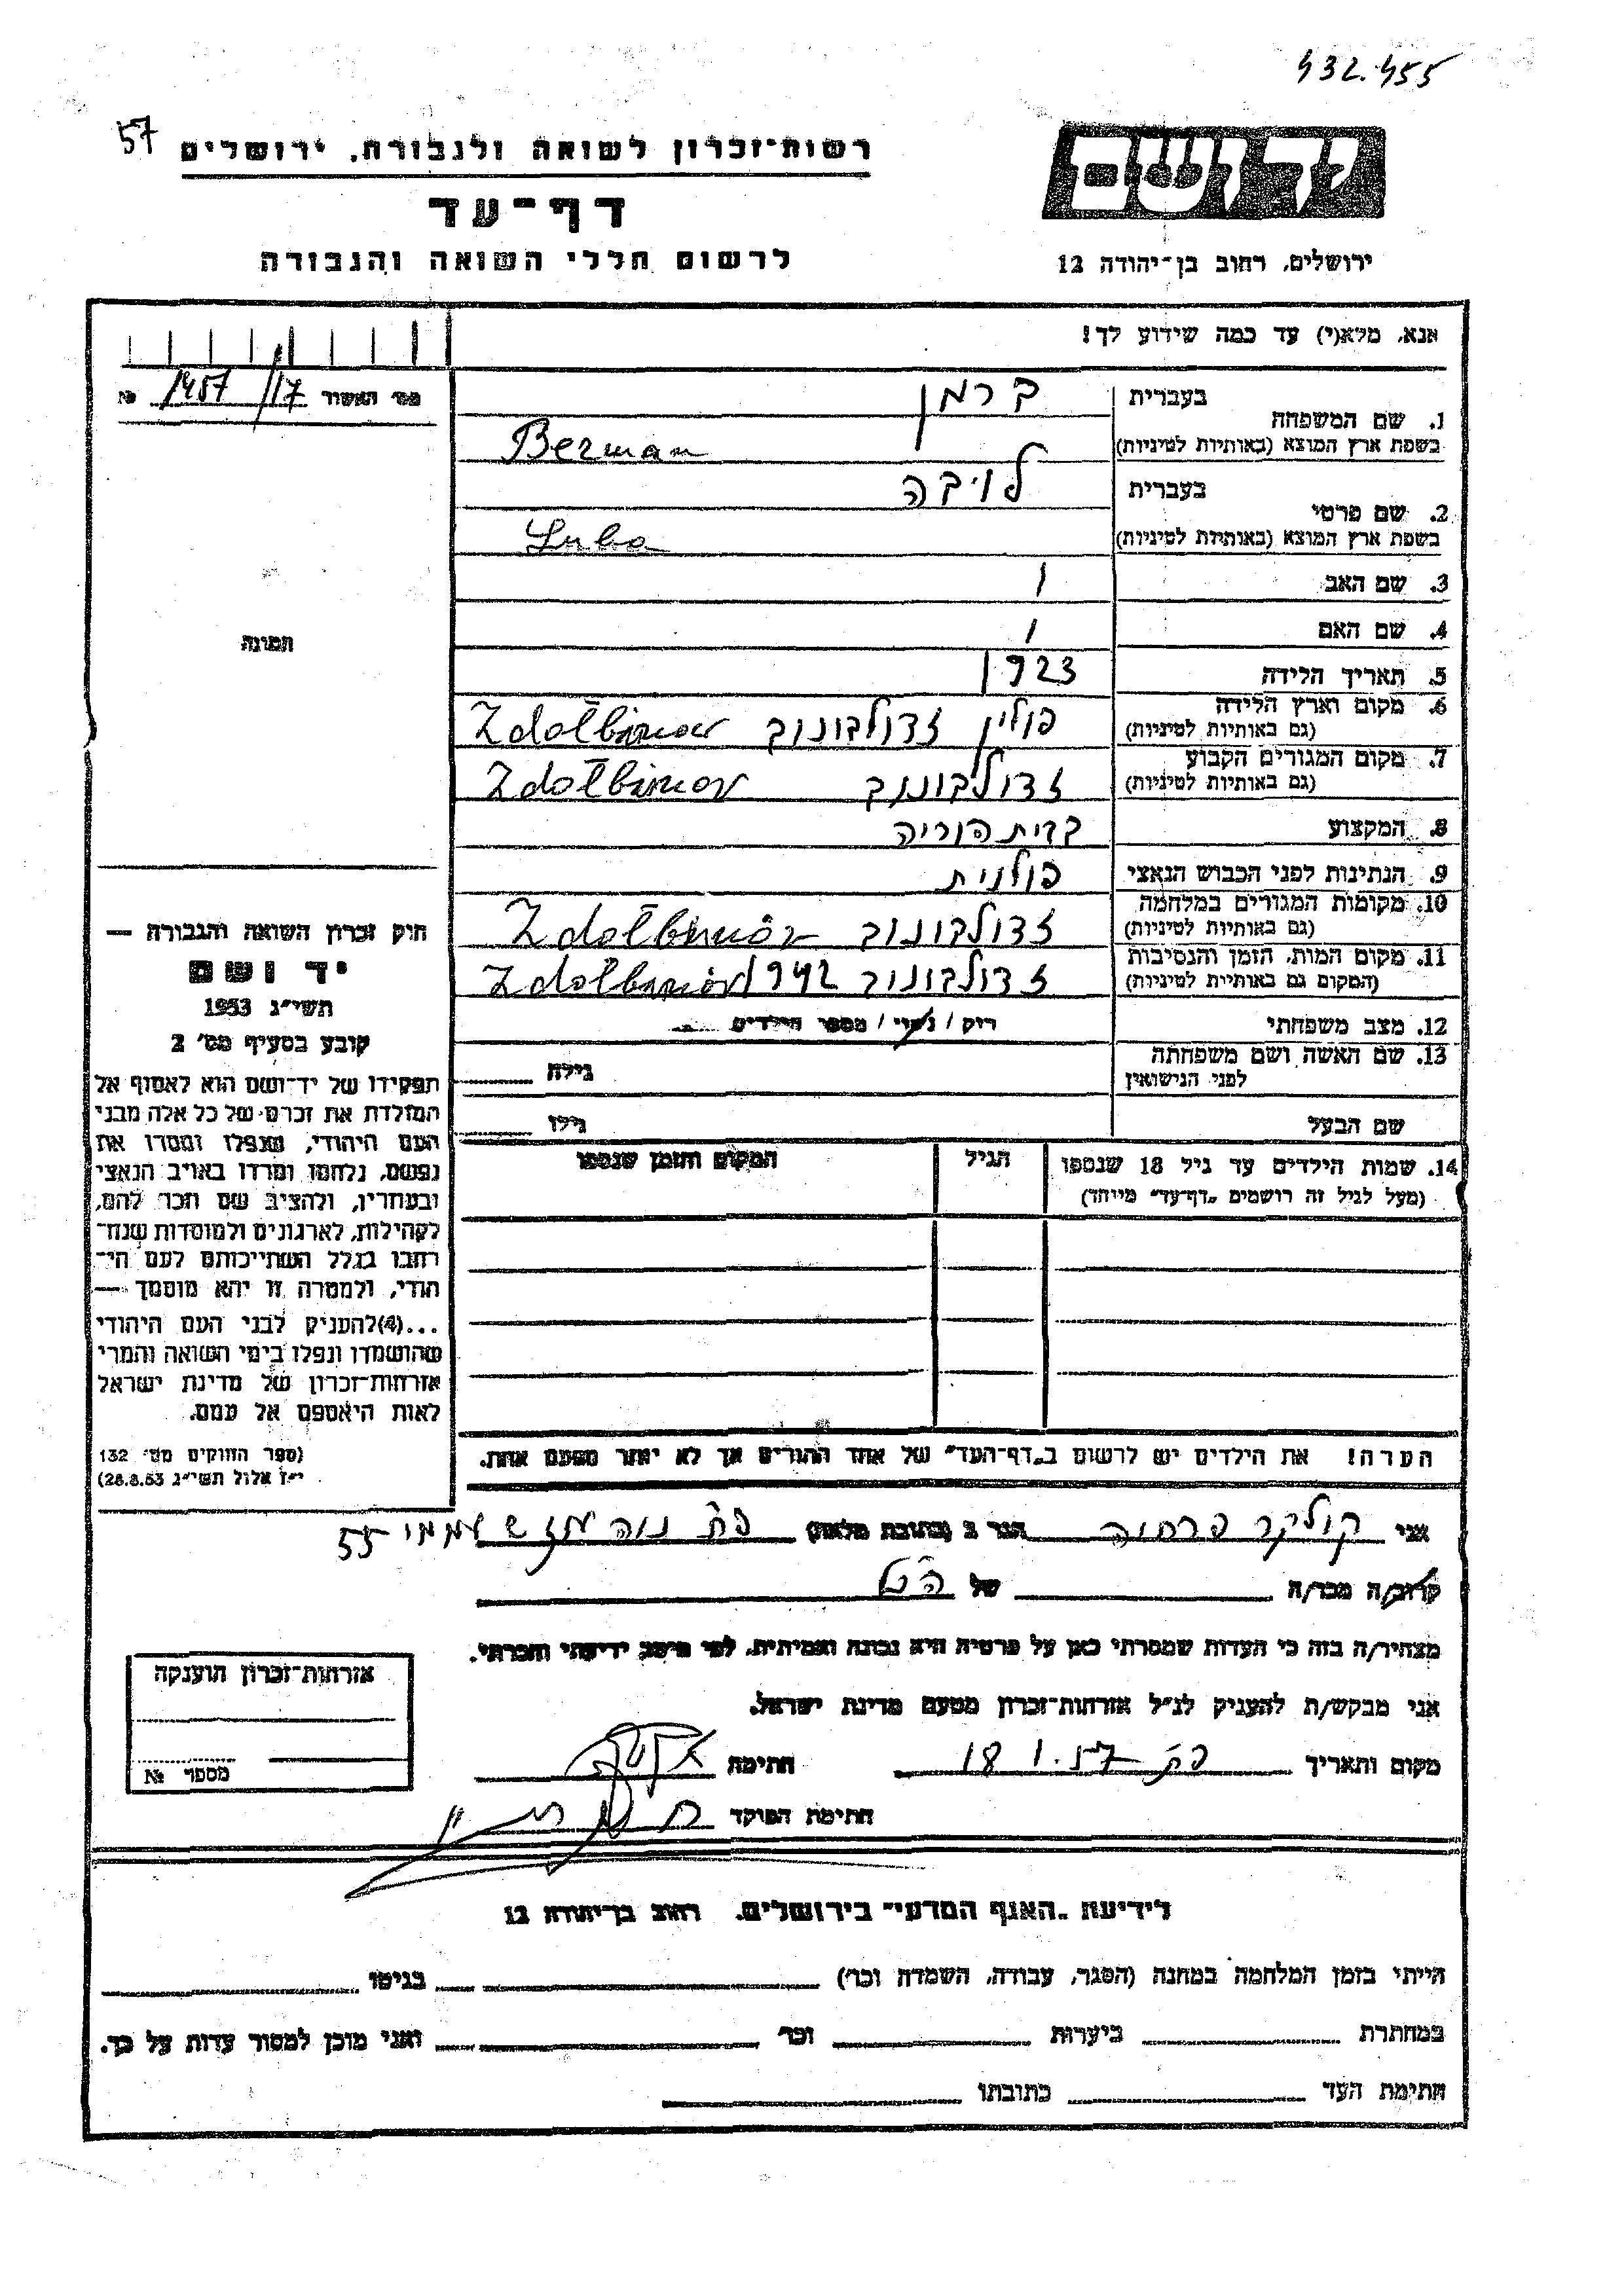 432.455
57
רשות־זכרון לשואה ולגבורה, ירושלים
דף־עד
לרשום חללי השואה והגבורה
יד ושם
ירושלים, רחוב בן־יהודה 12
אנא, מלא(י) עד כמה שידוע לך!
מס׳ האשור 17/ 1457 №
1. שם המשפחה
בעברית ברמן
בשפת ארץ המוצא (באותיות לטיניות) Berman
2. שם פרטי
בעברית לויבה
בשפת ארץ המוצא (באותיות לטיניות) Luba
3. שם האב /
4. שם האם /
5. תאריך הלידה 1923
6. מקום וארץ הלידה (גם באותיות לטיניות) פולין זדולבונוב Zdołbunow
7. מקום המגורים הקבוע (גם באותיות לטיניות) זדולבונוב Zdołbunov
8. המקצוע
9. הנתינות לפני הכבוש הנאצי פולנית
10. מקומות המגורים במלחמה (גם באותיות לטיניות) זדולבונוב Zdołbunów
11. מקום המות, הזמן והנסיבות (המקום גם באותיות לטיניות) זדולבונוב 1942 Zdołbunów
12. מצב משפחתי רוק / נשוי / מספר הילדים
13. שם האשה ושם משפחתה לפני הנישואין גילה
שם הבעל גילו
14. שמות הילדים עד גיל 18 שנספו
(מעל לגיל זה רושמים „דף־עד" מייחד)
הגיל
המקום והזמן שנספו
הערה! את הילדים יש לרשום ב„דף־העד" של אחד ההורים אך לא יותר מפעם אחת.
תמונה
חוק זכרון השואה והגבורה —
יד ושם
תשי״ג 1953
קובע בסעיף מס׳ 2
תפקידו של יד־ושם הוא לאסוף אל
המולדת את זכרם של כל אלה מבני
העם היהודי, שנפלו ומסרו את
נפשם, נלחמו ומרדו באויב הנאצי
ובעוזריו, ולהציב שם וזכר להם,
לקהילות, לארגונים ולמוסדות שנח־
רבו בגלל השתייכותם לעם הי־
הודי, ולמטרה זו יהא מוסמך —
...(4)להעניק לבני העם היהודי
שהושמדו ונפלו בימי השואה והמרי
אזרחות־זכרון של מדינת ישראל
לאות היאספם אל עמם.
(ספר החוקים מס׳ 132
י״ז אלול תשי״ג 28.8.53)
אני קולקר הגר ב (כתובת מלאה) פ״ת נוה 55
קרוב/ה מכר/ה של הנ״ל
מצהיר/ה בזה כי העדות שמסרתי כאן על פרטיה היא נכונה ואמיתית, לפי מיטב ידיעתי והכרתי.
אני מבקש/ת להעניק לנ״ל אזרחות־זכרון מטעם מדינת ישראל.
מקום ותאריך פ״ת 18.1.57 חתימה
חתימת הפוקד
אזרחות־זכרון הוענקה
מספר №
לידיעת „האגף המדעי" בירושלים, רחוב בן־יהודה 12
הייתי בזמן המלחמה במחנה (הסגר, עבודה, השמדה וכו׳) בגיטו
במחתרת ביערות וכו׳ ואני מוכן למסור עדות על כך.
חתימת העד כתובתו